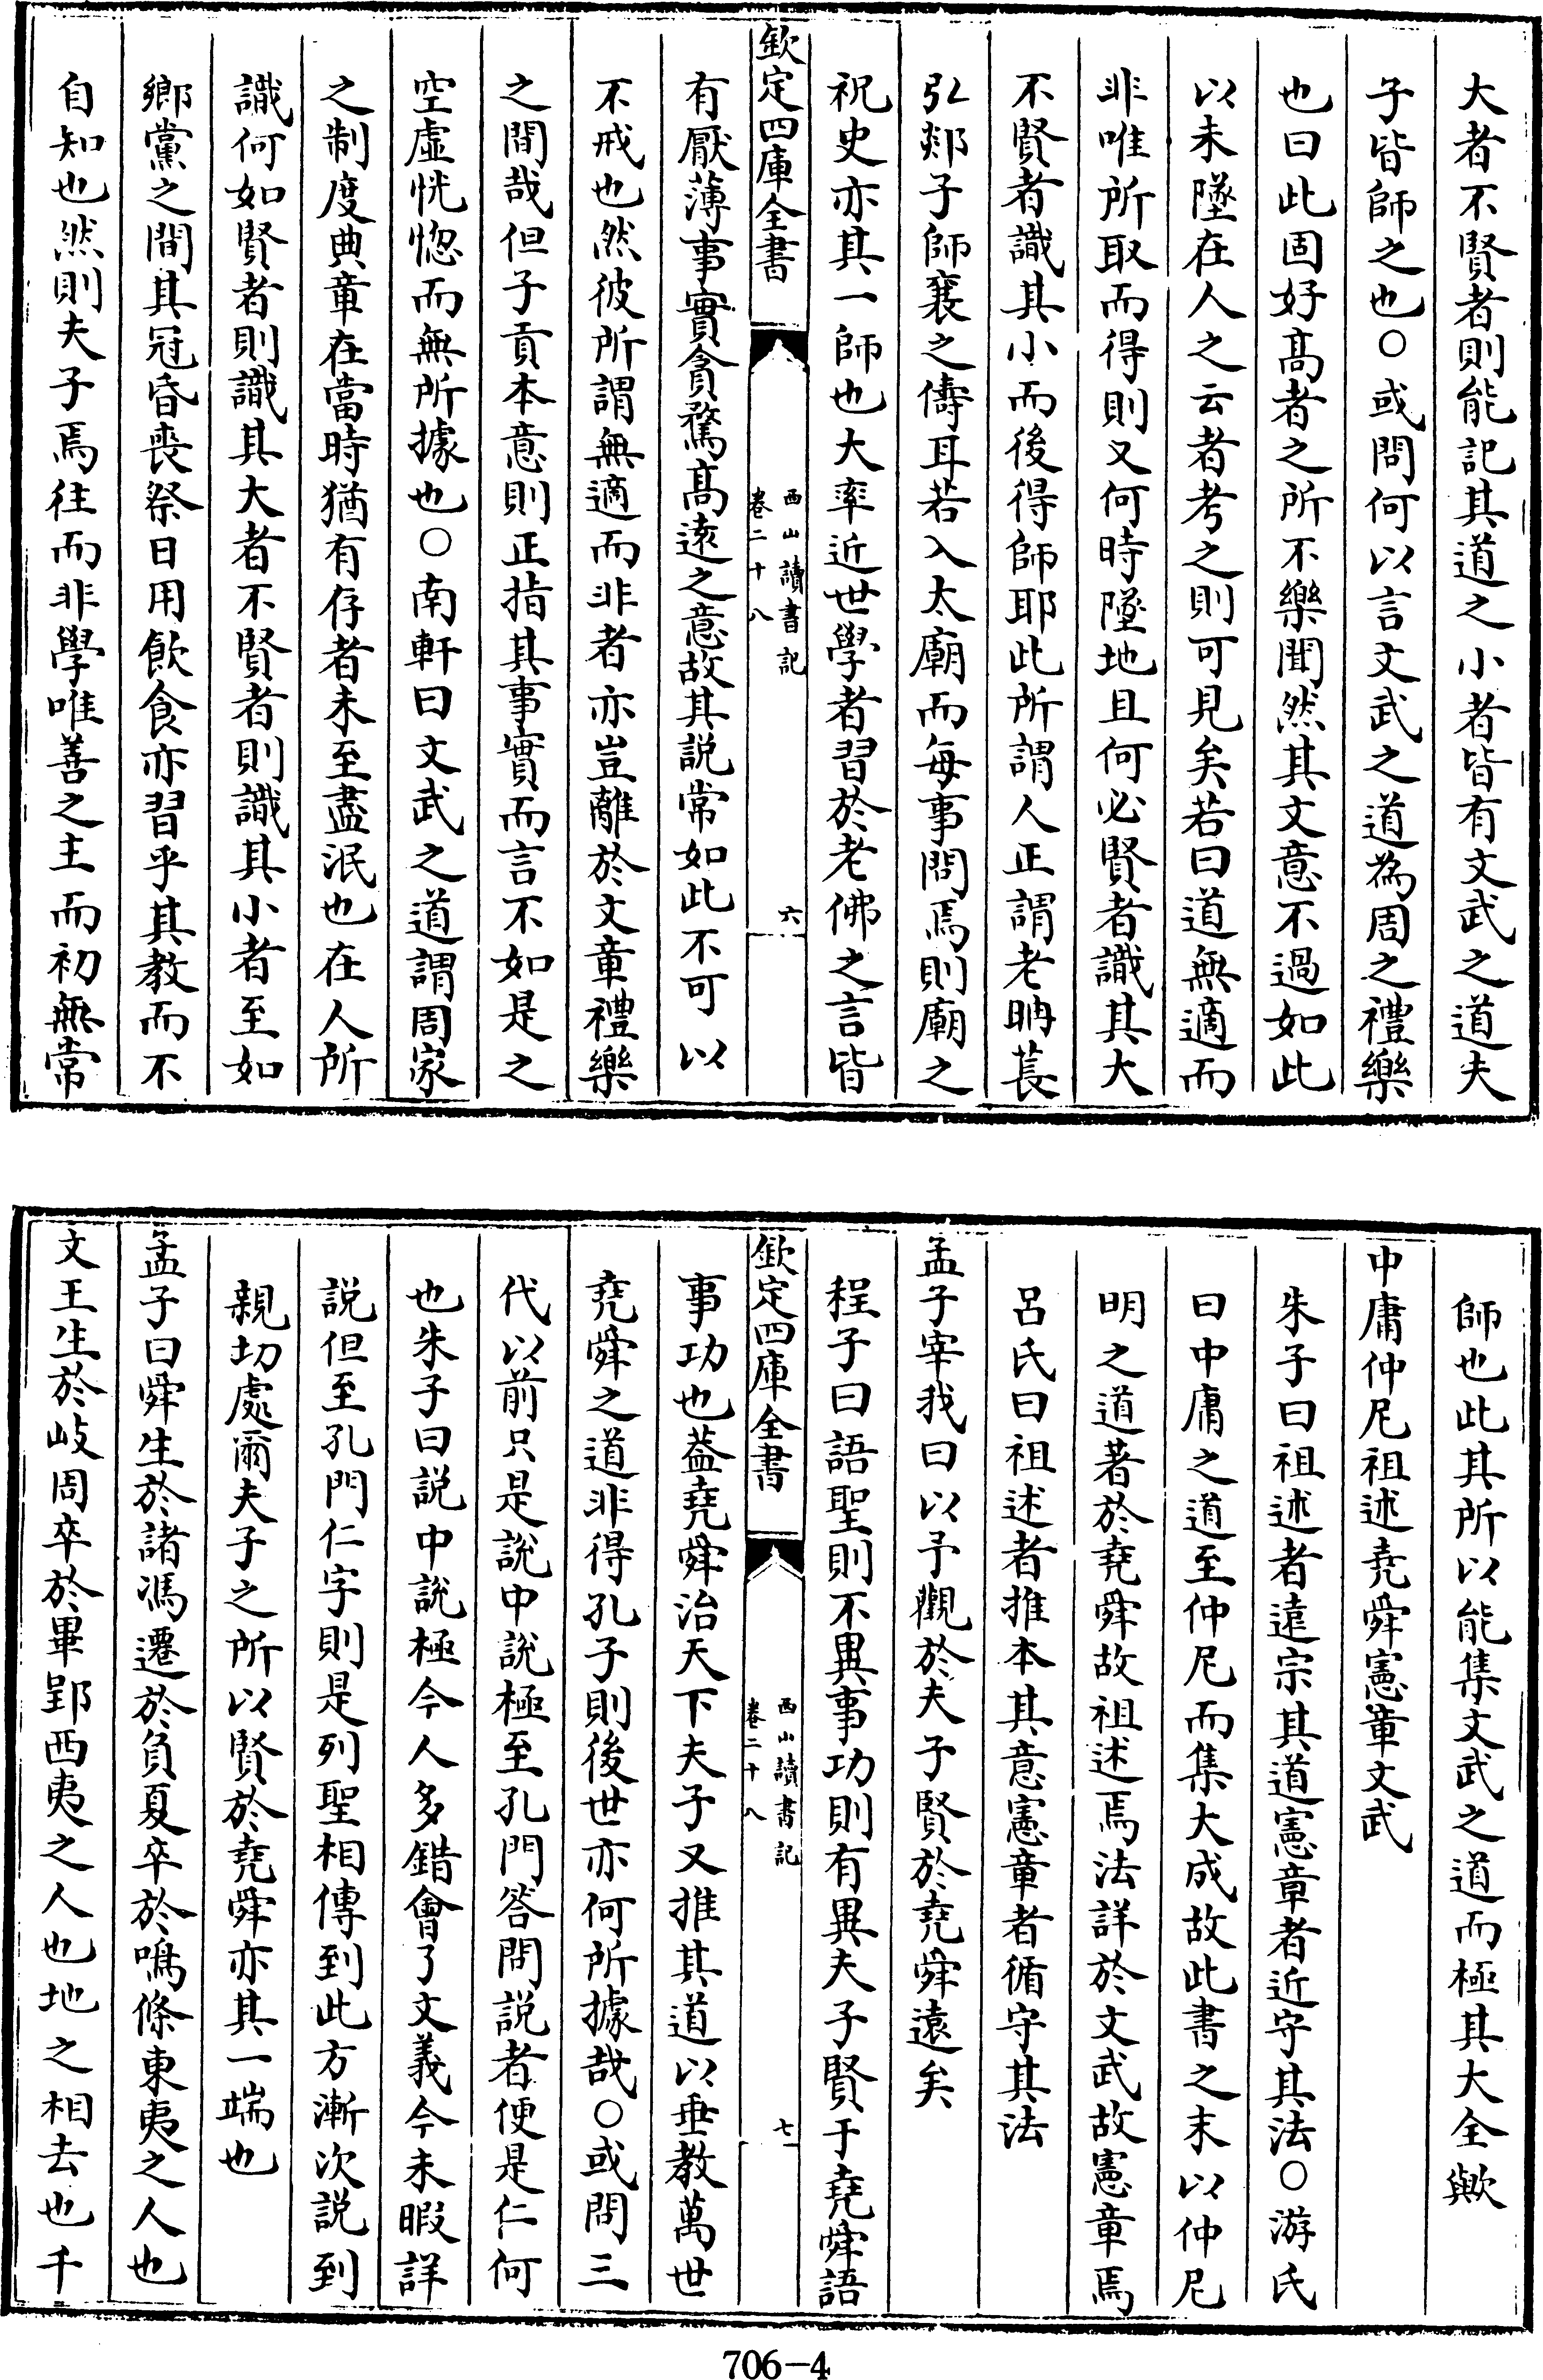 大者不賢者則能記其道之小者皆有文武之道夫
子皆師之也○或問何以言文武之道為周之禮樂
也曰此固好髙者之所不樂聞然其文意不過如此
以未墜在人之云者考之則可見矣若曰道無適而
非唯所取而得則又何時墜地且何必賢者識其大
不賢者識其小而後得師耶此所謂人正謂老聃萇
弘郯子師襄之儔耳若入太廟而每事問焉則廟之
祝史亦其一師也大率近世學者習於老佛之言皆
欽定四庫全書
西山讀書記
卷二十八
六
有厭薄事實貪騖髙逺之意故其説常如此不可以
不戒也然彼所謂無適而非者亦豈離於文章禮樂
之間哉但子貢本意則正指其事實而言不如是之
空虛恍惚而無所據也○南軒曰文武之道謂周家
之制度典章在當時猶有存者未至盡泯也在人所
識何如賢者則識其大者不賢者則識其小者至如
鄉黨之間其冠昏喪祭日用飲食亦習乎其教而不
自知也然則夫子焉往而非學唯善之主而初無常
師也此其所以能集文武之道而極其大全歟
中庸仲尼祖述堯舜憲章文武
朱子曰祖述者逺宗其道憲章者近守其法○游氏
曰中庸之道至仲尼而集大成故此書之末以仲尼
明之道著於堯舜故祖述焉法詳於文武故憲章焉
呂氏曰祖述者推本其意憲章者循守其法
孟子宰我曰以予觀於夫子賢於堯舜遠矣
程子曰語聖則不異事功則有異夫子賢于堯舜語
欽定四庫全書
西山讀書記
卷二十八
七
事功也葢堯舜治天下夫子又推其道以垂教萬世
堯舜之道非得孔子則後世亦何所據哉○或問三
代以前只是說中說極至孔門答問説者便是仁何
也朱子曰説中說極今人多錯會了文義今未暇詳
説但至孔門仁字則是列聖相傳到此方漸次説到
親切處爾夫子之所以賢於堯舜亦其一端也
孟子曰舜生於諸馮遷於負夏卒於鳴條東夷之人也
文王生於岐周卒於畢郢西夷之人也地之相去也千
706-4